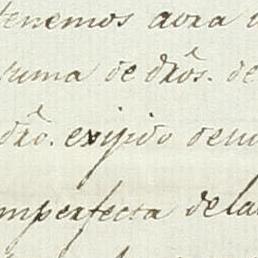 tenemos aora
suma de dr̂os. de
dr̂o. exijido
imperfecta de la